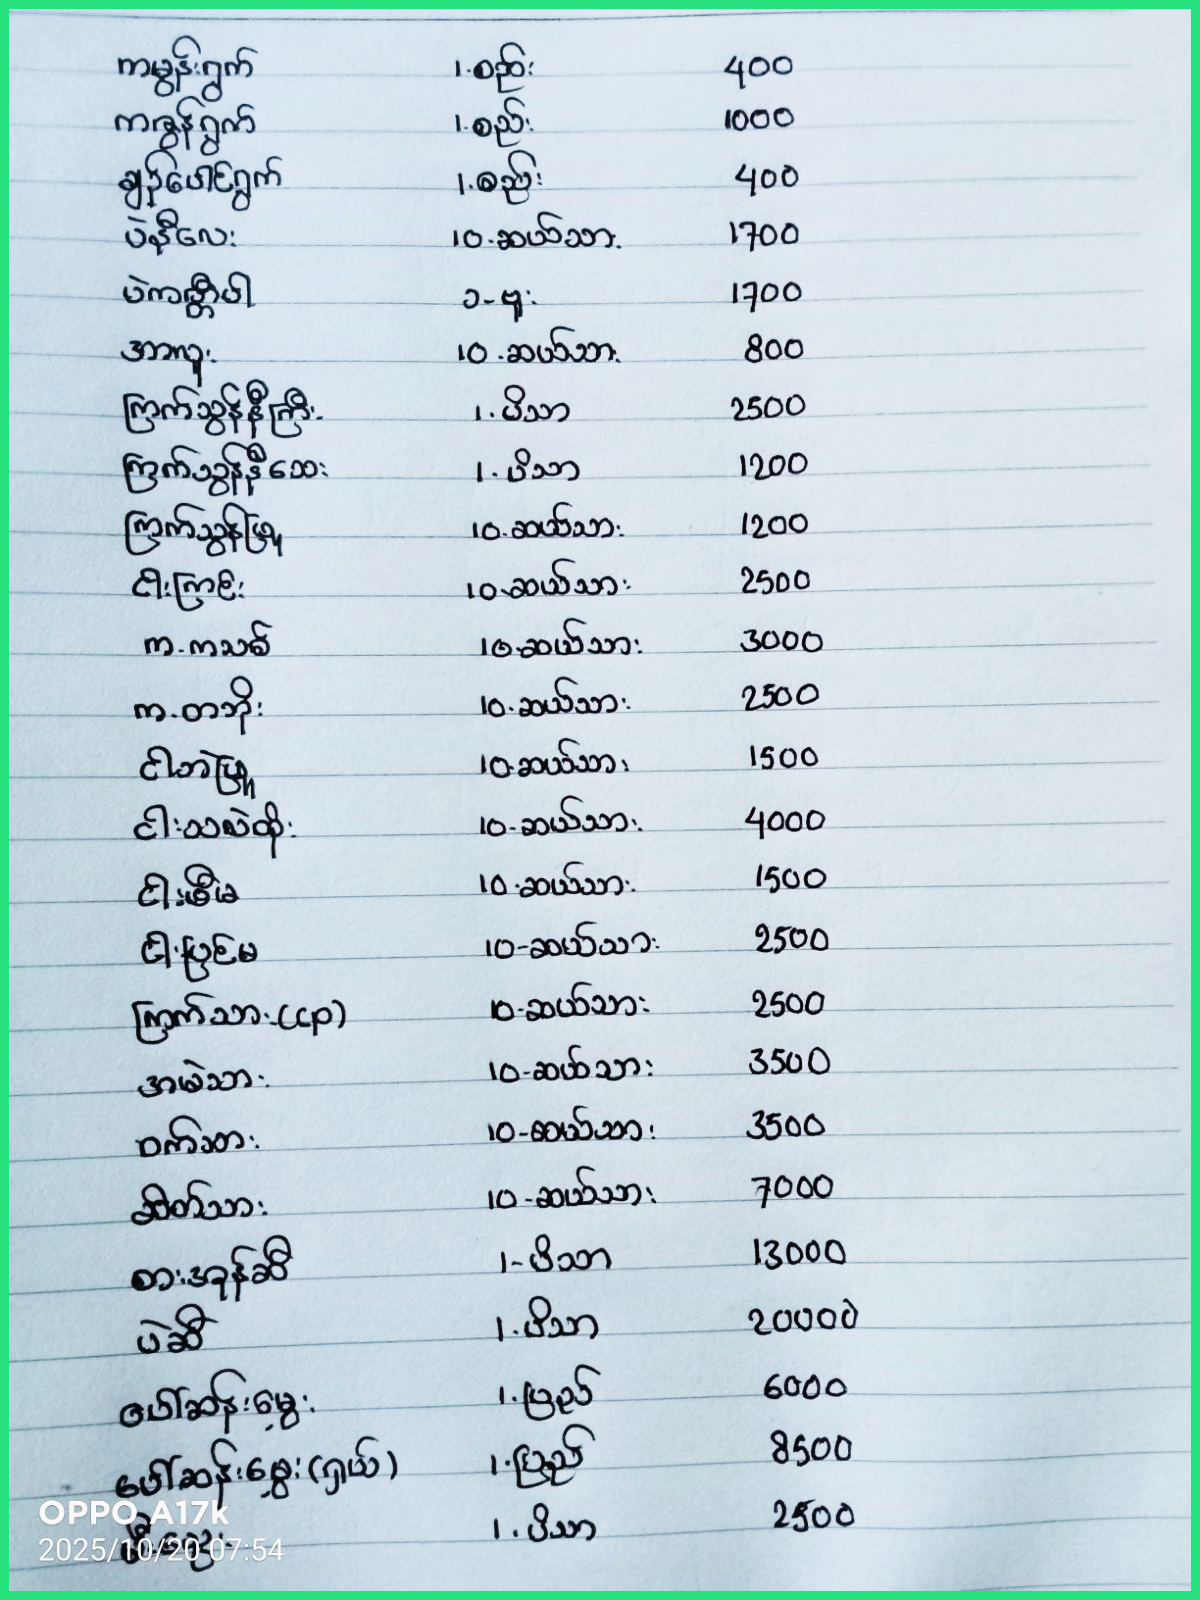 ကမွန်းရွက် 1.စည်း 400
ကဇွန်ရွက် 1.စည်း 1000
ချဉ်ပေါင်ရွက် 1.စည်း 400
ပဲနီလေး 10.ဆယ်သား 1700
ပဲကတ္တီပါ ၁-ဗူး 1700
အာလူး 10.ဆယ်သား 800
ကြက်သွန်နီကြီး 1.ပိသာ 2500
ကြက်သွန်နီသေး 1.ပိသာ 1200
ကြက်သွန်ဖြူ 10.ဆယ်သား 1200
ငါးကြင်း 10.ဆယ်သား 2500
က.ကသစ် 10.ဆယ်သား 3000
က.တဘိုး 10.ဆယ်သား 2500
ငါးဘဲဖြူ 10.ဆယ်သား 1500
ငါးသလဲထိုး 10-ဆယ်သား 4000
10.ဆယ်သား 1500
ငါးပြင်မ 10-ဆယ်သား 2500
ကြက်သား(cp) 10-ဆယ်သား 2500
အမဲသား 10-ဆယ်သား 3500
ဝက်သား 10-ဆယ်သား 3500
ဆိတ်သား 10-ဆယ်သား 7000
စားအုန်ဆီ 1-ပိသာ 13000
ပဲဆီ 1.ပိသာ 20000
ပေါ်ဆန်းမွှေး 1.ပြည် 6000
ပေါ်ဆန်းမွှေး(ရှယ်) 1.ပြည် 8500
1.ပိသာ 2500
OPPO A17k
2025/10/20 07:54